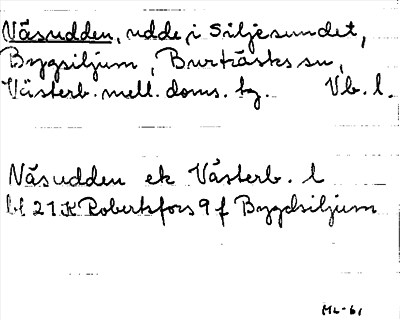 Näsudden, udde i Siljesundet,
Bygsiljum, Burträsks sn,
Västerb. mell. doms. tg. Vb. l.
Näsudden ek Västerb. l
bl 21 K Robertsfors 9 f Bygdsiljum
ML-61